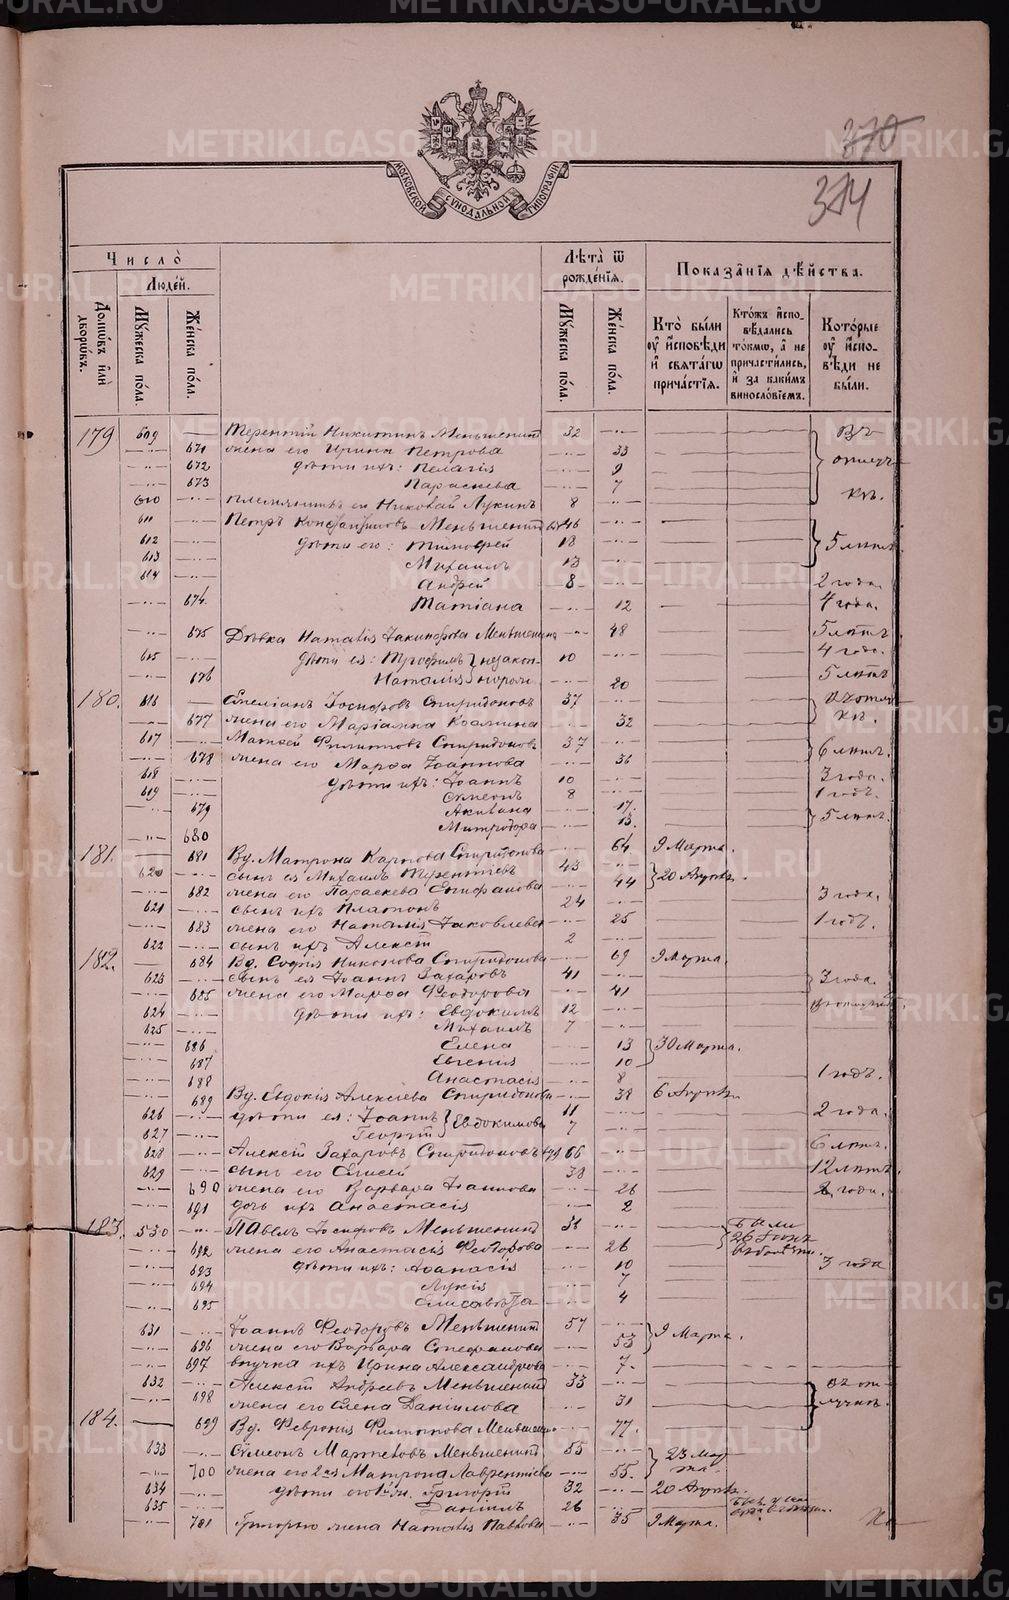 370
374
МОСКОВСКОЙ СѴНОДАЛЬНОЙ ТИПОГРАФІИ
Число̀
Людей.
Домѡвъ и҆лѝ дворѡвъ.
Мꙋжеска по́ла.
Же́нска по́ла.
Лѣта̀ ѿ рожде́нїѧ.
Мꙋжеска по́ла.
Же́нска по́ла.
Показа̑нїѧ дѣ́йства.
Кто̀ бы́ли ᲂу҆ и҆сповѣди и҆ свѧта́гѡ прича́стїѧ.
Кто́жъ и҆спо-вѣдались то́кмѡ, а҆ не причасти́лись, и҆ за каки́мъ винослові́емъ.
Кото́рые ᲂу҆ и҆спо-вѣди не бы́ли.
179 609 Терентій Никитинъ Меньшенинъ 32 Въ
671 жена его Ирина Петрова 33
672 дѣти ихъ: Пелагія 9 отлуч-
673 Параскева 7
610 племянникъ ея Николай Лукинъ 8 кѣ.
611 Петръ Константиновъ Меньшенинъ 46
612 дѣти его: Тимоѳей 18 5 лѣтъ
613 Михаилъ 13
614 Андрей 8 2 года.
674. Татіана 12 4 года.
675 Дѣвка Наталія Іакинѳова Меньшенина 48 5 лѣтъ
615 дѣти ея: Трофимъ незакон- 10 4 года.
676 Наталія норожд. 20 5 лѣтъ
180. 616 Емеліанъ Іосифовъ Спиридоновъ 37 В отлуч
677 жена его Маріамна Козмина 32 кѣ.
617 Матѳей Филипповъ Спиридоновъ 37 6 лѣтъ.
678 жена его Марѳа Іоаннова 36
618 дѣти ихъ: Іоаннъ 10 3 года.
619 Сѵмеонъ 8 1 годъ.
679 Акилина 17. 5 лѣтъ.
680 Митродора 13.
181. 681 Вд. Матрона Карпова Спиридонова 64 9 Марта.
620 сынъ ея Михаилъ Терентіевъ 43 20 Апрѣл.
682 жена его Параскева Епифанова 44
621 сынъ ихъ Платонъ 24 3 года.
683 жена его Наталія Іаковлева 25 1 годъ.
622 сынъ ихъ Алексій 2
182. 684 Вд. Софія Никонова Спиридонова 69 9 Марта.
623 сынъ ея Іоаннъ Захаровъ 41 3 года.
685 жена его Марѳа Ѳеодорова 41
624 дѣти ихъ: Евдокимъ 12
625 Михаилъ 7
686 Елена 13 30 Марта.
687 Евгенія 10
688 Анастасія 8 1 годъ.
689 Вд. Евдокія Алексіева Спиридонова 38 6 Апрѣл.
626 дѣти ея: Іоаннъ Евдокимовы 11 2 года.
627 Георгій 7
628 Алексій Захаровъ Спиридоновъ 66 6 лѣтъ.
629 сынъ его Елисей 38 12 лѣтъ.
690 жена его Варвара Іоаннова 26 2 года.
691 дочь ихъ Анастасія 2
183. 530 Павелъ Іосифовъ Меньшенинъ 31 были
692 жена его Анастасія Ѳеодорова 26 26
693 дѣти ихъ: Аѳанасія 10 3 года
694 Лукія 7
695 Елисавета 4
631 Іоаннъ Ѳеодоровъ Меньшенинъ 57 9 Марта.
696 жена его Варвара Стефанова 53
697 внучка ихъ Ирина Александрова 7
632 Алексій Андреевъ Меньшенинъ 33 въ от-
698 жена его Елена Даніилова 31 лучкѣ.
184. 699 Вд. Февронія Филиппова Меньшен. 77
633 Сѵмеонъ Матвѣевъ Меньшенинъ 55 23 Мар
700 жена его 2ая Матрона Лаврентіева 55. та.
634 дѣти его 1й ж. Григорій 32 20 Апрѣл.
635 Даніилъ 26
701 Григорью жена Наталія Павлова 35 9 Марта.